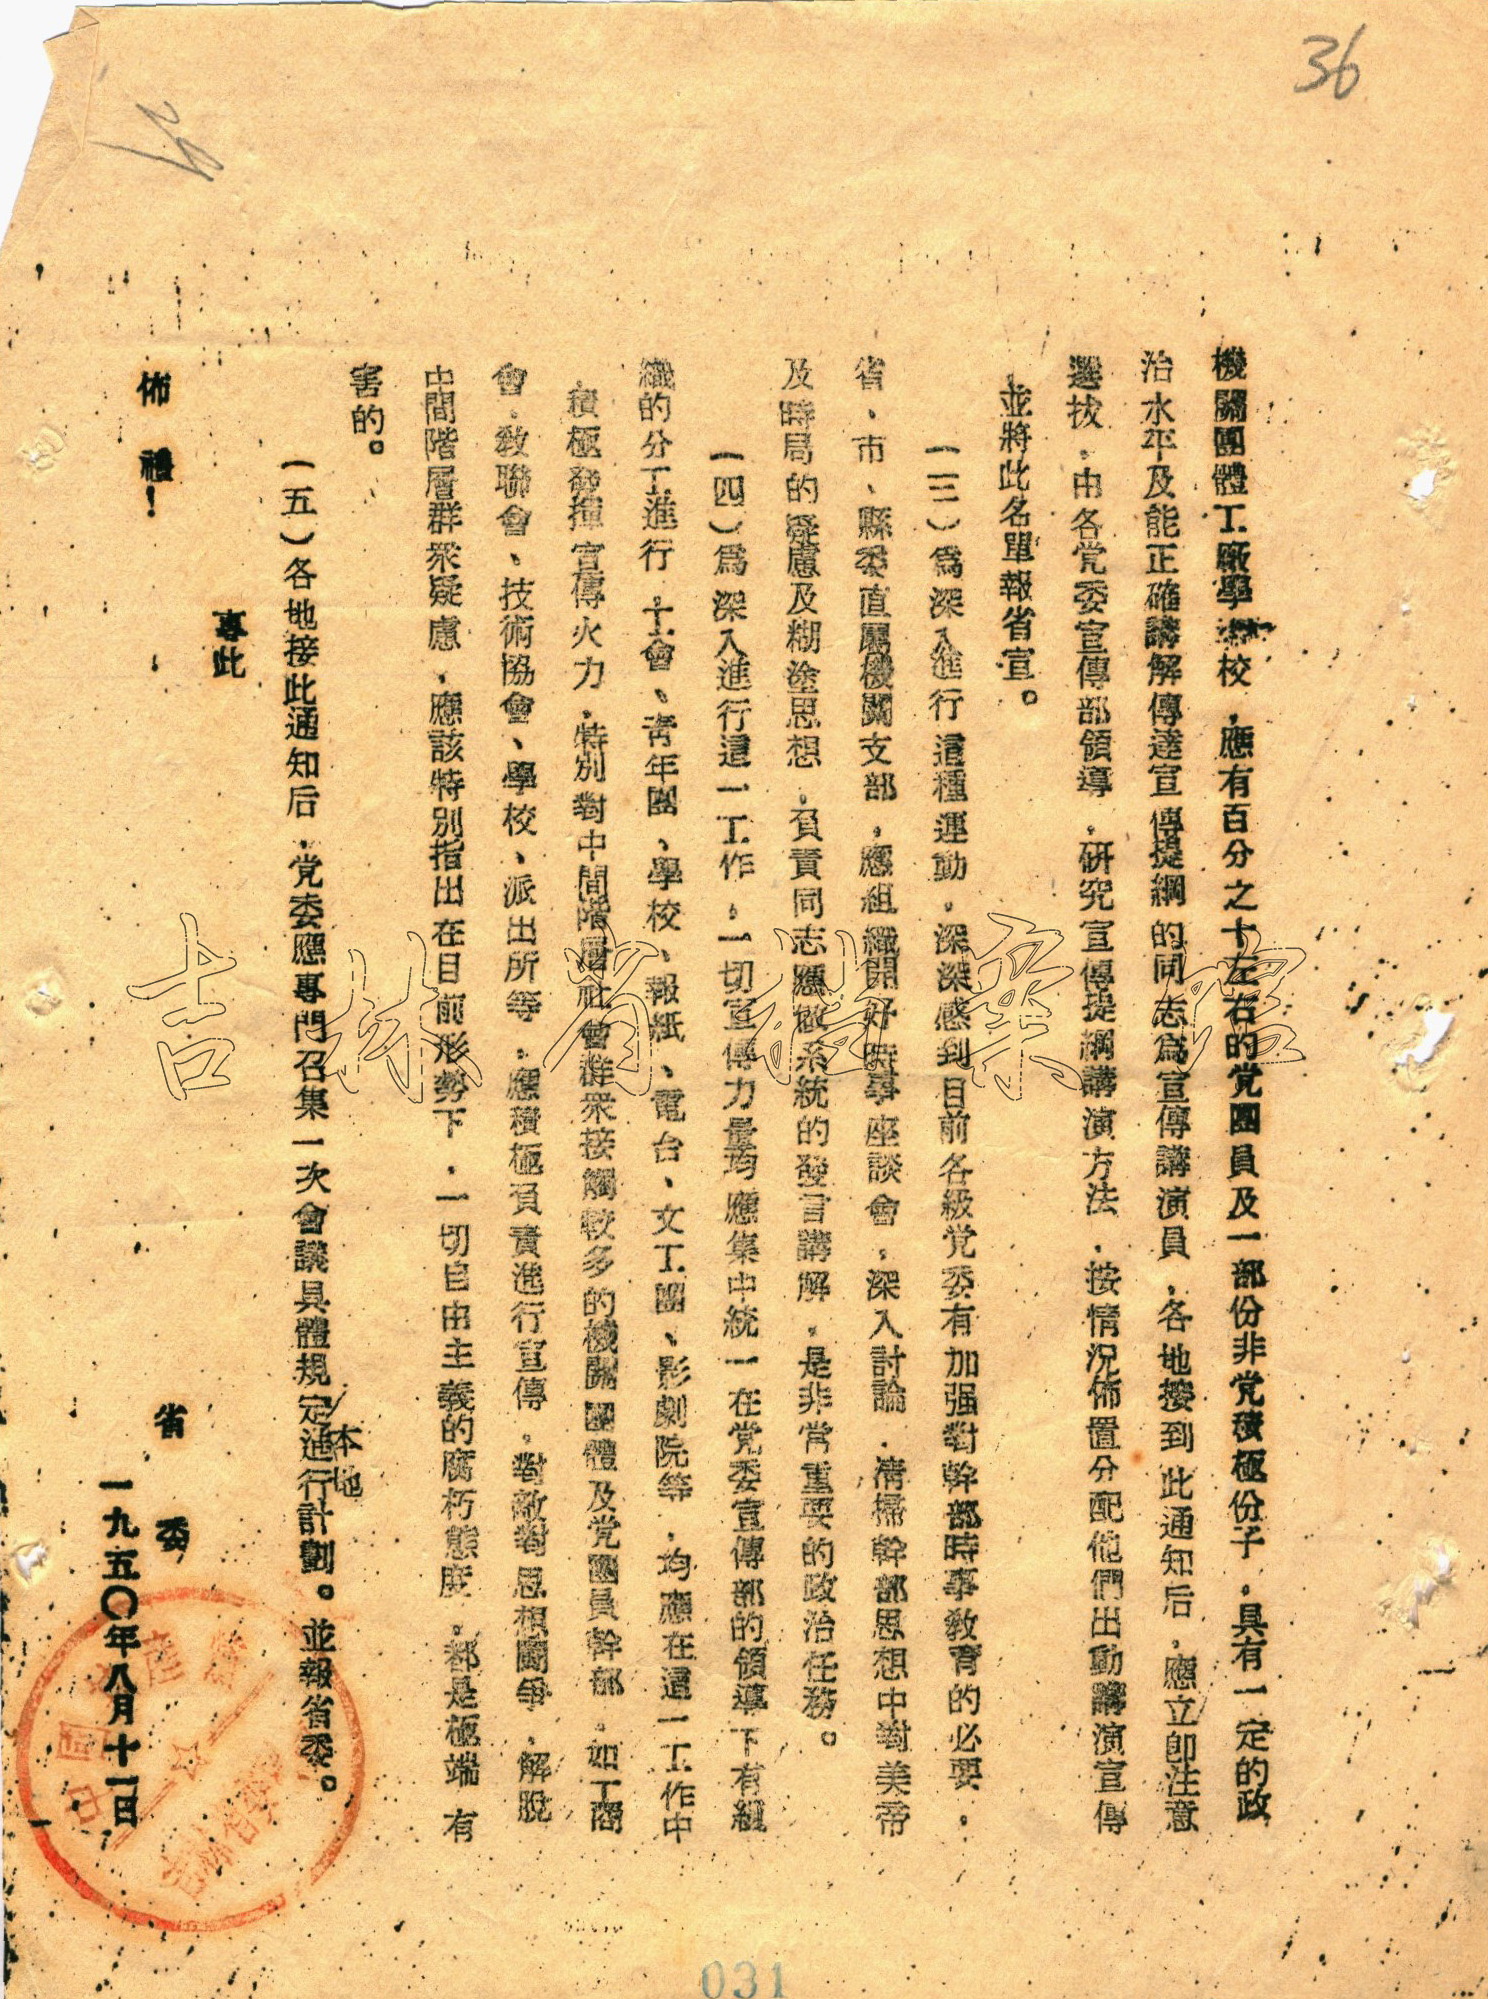 36
機關團體工廠學校，應有百分之十左右的党團員及一部份非党積極份子，具有一定的政
治水平及能正確講解傳達宣傳提綱的同志為宣傳講演員，各地接到此通知后，應立即注意
選拔，由各党委宣傳部領導，研究宣傳提綱講演方法，按情況佈置分配他們出動講演宣傳
，並將此名單報省宣。
（三）為深入進行這種運動，深深感到目前各級党委有加强對幹部時事教育的必要，
省、市、縣委直屬機關支部，應組織開好時事座談會，深入討論，清掃幹部思想中對美帝
及時局的疑慮及糊塗思想，負責同志應做系統的發言講解，是非常重要的政治任務。
（四）為深入進行這一工作，一切宣傳力量均應集中統一在党委宣傳部的領導下有組
織的分工進行，工會、青年團、學校、報紙、電台、文工團、影劇院等，均應在這一工作中
，積極發揮宣傳火力，特別對中間階層社會群衆接觸較多的機關團體及党團員幹部，如工商
會，教聯會、技術協會、學校、派出所等，應積極負責進行宣傳，對敵對思想鬭爭，解脫
中間階層群衆疑慮，應該特別指出在目前形勢下，一切自由主義的腐朽態度，都是極端有
害的。
（五）各地接此通知后，党委應專門召集一次會議具體規定本地進行計劃。並報省委。
專此
佈禮！
省委
一九五〇年八月十一日
中國共產黨
吉林省委
031
吉林省檔案館